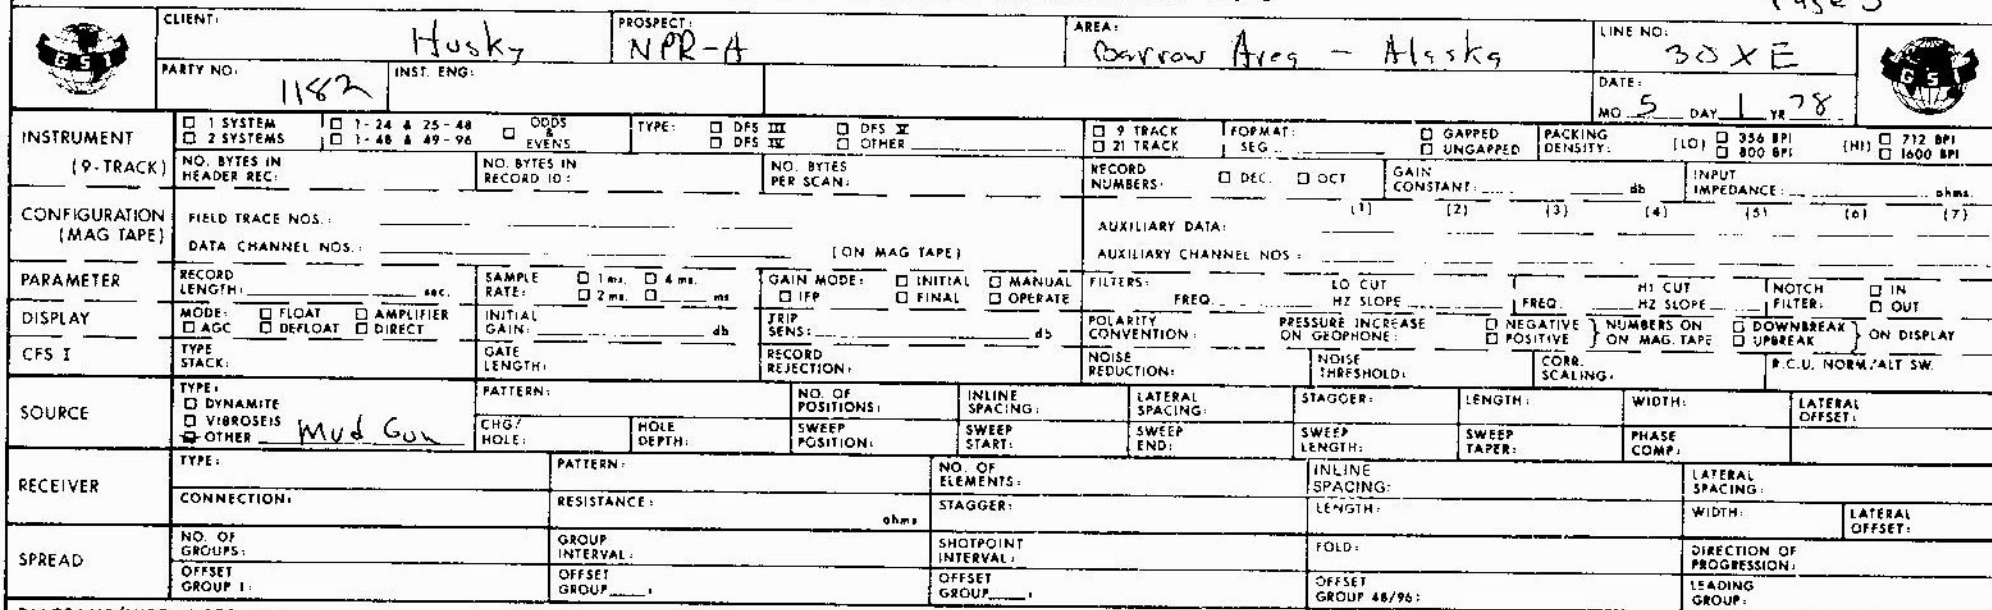 Page 3
CLIENT: Husky PROSPECT: NPR-A AREA: Barrow Area - Alaska LINE NO: 30XE
GSI GSI
PARTY NO: 1182 INST. ENG: DATE:
MO 5 DAY 1 YR 78
INSTRUMENT □ 1 SYSTEM □ 1-24 & 25-48 □ ODDS & EVENS TYPE: □ DFS III □ DFS V □ 9 TRACK FORMAT: □ GAPPED PACKING [LO] □ 356 BPI [HI] □ 712 BPI
□ 2 SYSTEMS □ 1-48 & 49-96 □ DFS IV □ OTHER □ 21 TRACK SEG □ UNGAPPED DENSITY: □ 800 BPI □ 1600 BPI
(9-TRACK) NO. BYTES IN HEADER REC: NO. BYTES IN RECORD ID: NO. BYTES PER SCAN: RECORD NUMBERS: □ DEC. □ OCT GAIN CONSTANT: db INPUT IMPEDANCE: ohms.
CONFIGURATION FIELD TRACE NOS.: AUXILIARY DATA: (1) (2) (3) (4) (5) (6) (7)
(MAG TAPE) DATA CHANNEL NOS.: (ON MAG TAPE) AUXILIARY CHANNEL NOS:
PARAMETER RECORD LENGTH: sec. SAMPLE RATE: □ 1 ms. □ 4 ms. □ 2 ms. □ ms GAIN MODE: □ INITIAL □ MANUAL □ IFP □ FINAL □ OPERATE FILTERS: LO CUT FREQ. HZ SLOPE HI CUT FREQ. HZ SLOPE NOTCH FILTER: □ IN □ OUT
DISPLAY MODE: □ FLOAT □ AMPLIFIER □ AGC □ DEFLOAT □ DIRECT INITIAL GAIN: db TRIP SENS: db POLARITY CONVENTION: PRESSURE INCREASE ON GEOPHONE: □ NEGATIVE □ POSITIVE } NUMBERS ON ON MAG. TAPE □ DOWNBREAK □ UPBREAK } ON DISPLAY
CFS I TYPE STACK: GATE LENGTH: RECORD REJECTION: NOISE REDUCTION: NOISE THRESHOLD: CORR. SCALING: R.C.U. NORM/ALT SW.
SOURCE TYPE: □ DYNAMITE □ VIBROSEIS □ OTHER Mud Gun PATTERN: NO. OF POSITIONS: INLINE SPACING: LATERAL SPACING: STAGGER: LENGTH: WIDTH: LATERAL OFFSET:
CHG/HOLE: HOLE DEPTH: SWEEP POSITION: SWEEP START: SWEEP END: SWEEP LENGTH: SWEEP TAPER: PHASE COMP:
RECEIVER TYPE: PATTERN: NO. OF ELEMENTS: INLINE SPACING: LATERAL SPACING:
CONNECTION: RESISTANCE: ohms STAGGER: LENGTH: WIDTH: LATERAL OFFSET:
SPREAD NO. OF GROUPS: GROUP INTERVAL: SHOTPOINT INTERVAL: FOLD: DIRECTION OF PROGRESSION:
OFFSET GROUP 1: OFFSET GROUP : OFFSET GROUP : OFFSET GROUP 48/96: LEADING GROUP: